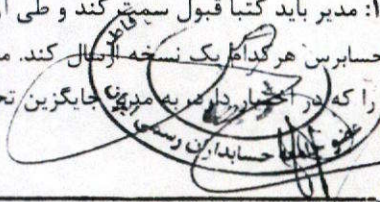 ۱: مدیر باید کتبا قبول سمت کند و طی ار
حسابرس هرکدام یک نسخه ارسال کند. م
را که در اختیار دارد، به مدیر جایگزین تح
حسابداران رسمی ایران